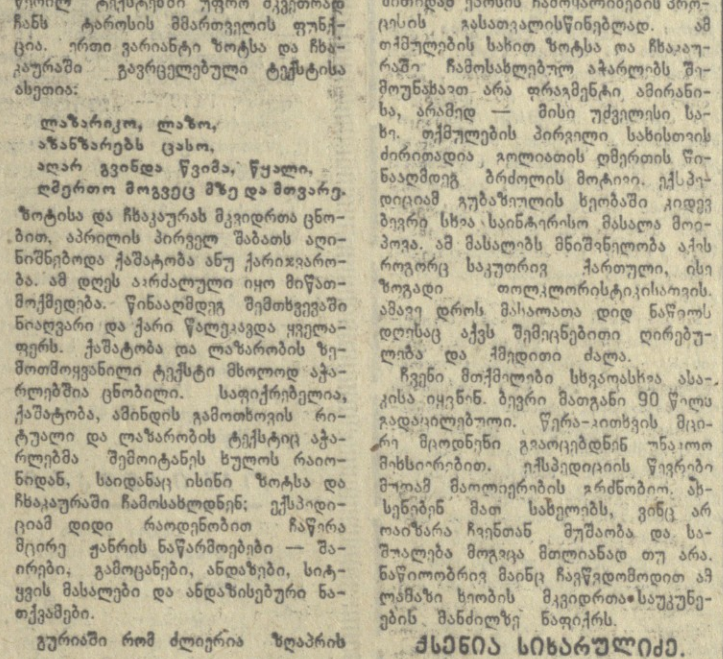 ჩანს ტაროსის მმართველის ფუნქ-
ცია. ერთი ვარიანტი ზოტსა და ჩხა-
კაურაში გავრცელებული ტექსტისა
ასეთია:
ლაზარიკო, ლაზო,
აზანზარებს ცასო,
აღარ გვინდა წვიმა, წყალი,
ღმერთო მოგვეც მზე და მთვარე.
ზოტისა და ჩხაკაურას მკვიდრთა ცნო-
ბით, აპრილის პირველ შაბათს აღი-
ნიშნებოდა ქაშატობა ანუ ქარიჯვარო-
ბა. ამ დღეს აკრძალული იყო მიწათ-
მოქმედება. წინააღმდეგ შემთხვევაში
ნიაღვარი და ქარი წალეკავდა ყველა-
ფერს. ქაშატობა და ლაზარობის ზე-
მოთმოყვანილი ტექსტი მხოლოდ აჭა-
რლებშია ცნობილი. საფიქრებელია,
ქაშატობა, ამინდის გამოთხოვის რი-
ტუალი და ლაზარობის ტექსტიც აჭა-
რლებმა შემოიტანეს ხულოს რაიო-
ნიდან, საიდანაც ისინი ზოტსა და
ჩხაკაურაში ჩამოსახლდნენ; ექსპედი-
ციამ დიდი რაოდენობით ჩაწერა
მცირე ჟანრის ნაწარმოებები — შა-
ირები, გამოცანები, ანდაზები, სიტ-
ყვის მასალები და ანდაზისებური ნა-
თქვამები.
გურიაში რომ ძლიერია ზღაპრის
ცესის გასათვალისწინებლად. ამ
თქმულების სახით ზოტსა და ჩხაკაუ-
რაში ჩამოსახლებულ აჭარლებს შე-
მოუნახავთ არა ფრაგმენტი ამირანი-
სა, არამედ — მისი უძველესი სა-
ხე. თქმულების პირველი სახისთვის
ძირითადია გოლიათის ღმერთის წი-
ნააღმდეგ ბრძოლის მოტივი. ექსპე-
დიციამ გუბაზეულის ხეობაში კიდევ
ბევრი სხვა საინტერესო მასალა მოი-
პოვა. ამ მასალებს მნიშვნელობა აქვს
როგორც საკუთრივ ქართული, ისე
ზოგადი ფოლკლორისტიკისათვის.
ამავე დროს მასალათა დიდ ნაწილს
დღესაც აქვს შემეცნებითი ღირებუ-
ლება და ქმედითი ძალა.
ჩვენი მთქმელები სხვადასხვა ასა-
კისა იყვნენ. ბევრი მათგანი 90 წელს
გადაცილებული. წერა-კითხვის მცი-
რე მცოდნენი გვაოცებდნენ უბადლო
მეხსიერებით. ექსპედიციის წევრები
მუდამ მადლიერების გრძნობით ახ-
სენებენ მათ სახელებს, ვინც არ
დაიზარა ჩვენთან მუშაობა და სა-
შუალება მოგვცა მთლიანად თუ არა,
ნაწილობრივ მაინც ჩავწვდომოდით ამ
ლამაზი ხეობის მკვიდრთა საუკუნე-
ების მანძილზე ნაფიქრს.
ქსენია სიხარულიძე.